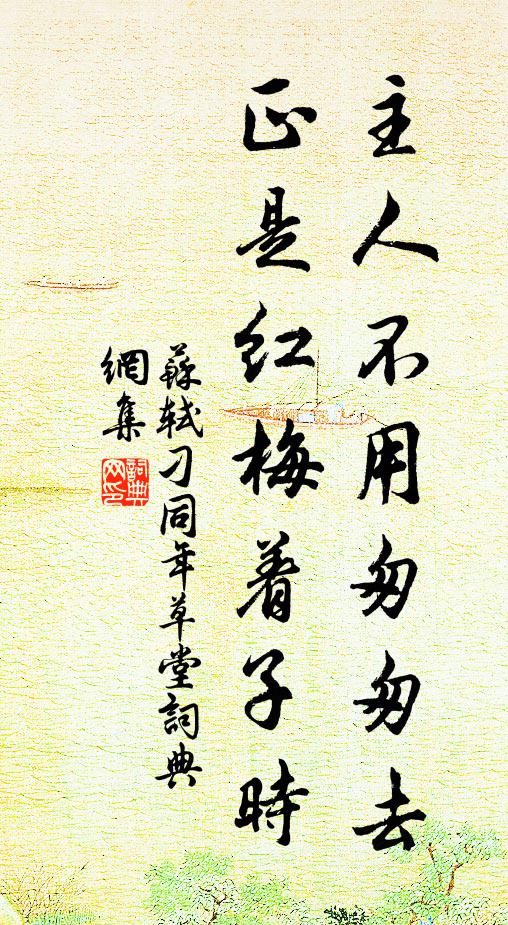 主人不用匆匆去
正是红梅着子時
蘇軾刁同年草堂詞典
網集
詞典网印